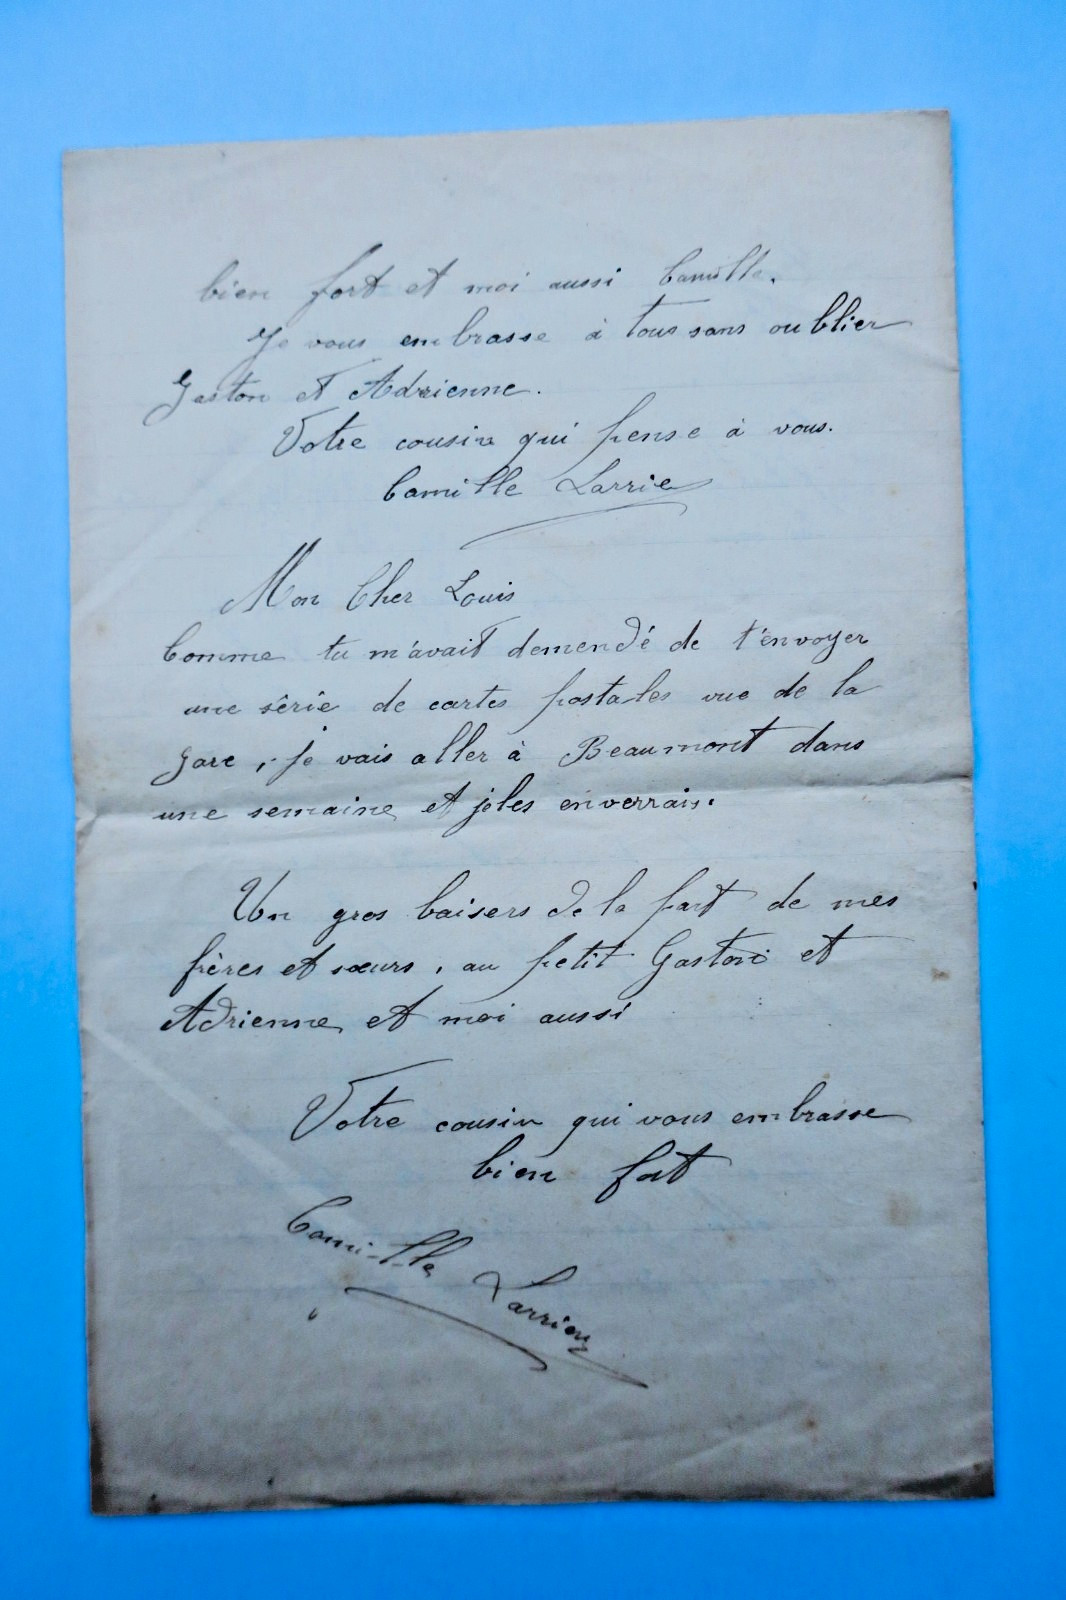 bien fort et moi aussi Camille.
Je vous embrasse à tous sans oublier
Gaston et Adrienne.
Votre cousin qui pense à vous.
Camille Larrieu
Mon Cher Louis
Comme tu m'avait demendé de t'envoyer
une sêrie de cartes postales vue de la
gare, je vais aller à Beaumont dans
une semaine et je les enverrais.
Un gros baisers de la part de mes
frères et sœurs, au petit Gaston et
Adrienne et moi aussi
Votre cousin qui vous embrasse
bien fort
Camille Larrieu